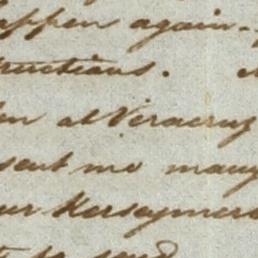 happen again.
tructions.
en at Veracruz
sent me many
ur Kerseymere